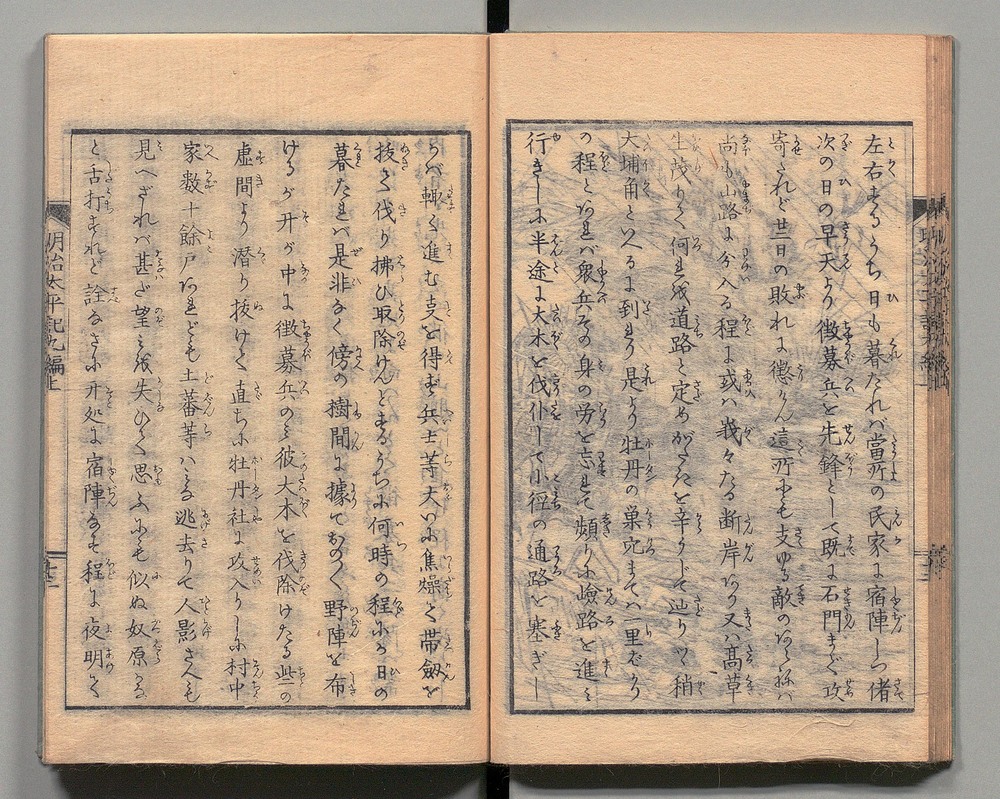 左右するうち日も暮たれバ當所の民家に宿陣しつ偖
次の日の早天より徴募兵を先鋒として既に石門まで攻
寄たれど廿二日の敗れに懲けん這所にも支ゆる敵のあらざれバ
尚も山路に分入る程に或ハ峩々たる断岸あり又ハ髙草
生茂りて何れを道路と定めがたきを辛うじて辿りつゝ稍
大埔角といへるに到れり是より牡丹の巣穴まてハ一里ばかり
の程とあれバ衆兵その身の労を忘れて頻りに嶮路を進み
行きしに半途に大木を伐仆して小徑の通路を塞ぎし
らバ輙く進む支を得ず兵士等大いに焦燥て帯劔を
抜て伐り拂ひ取除けんとするうちに何時の程にか日の
暮たれバ是非なく傍の樹間に據ておの〱野陣を布
けるが开が中に徴募兵のミ彼大木を伐除けたる些の
虚間より潜り抜けて直ちに牡丹社に攻入りしに村中
家数十餘戸あれども土蕃等ハミな逃去りて人影さへも
見へざれバ甚ざ望ミを失ひて思ふにも似ぬ奴原かな
と舌打すれど詮なさに开処に宿陣なせる程に夜明て
明治太平記九編上